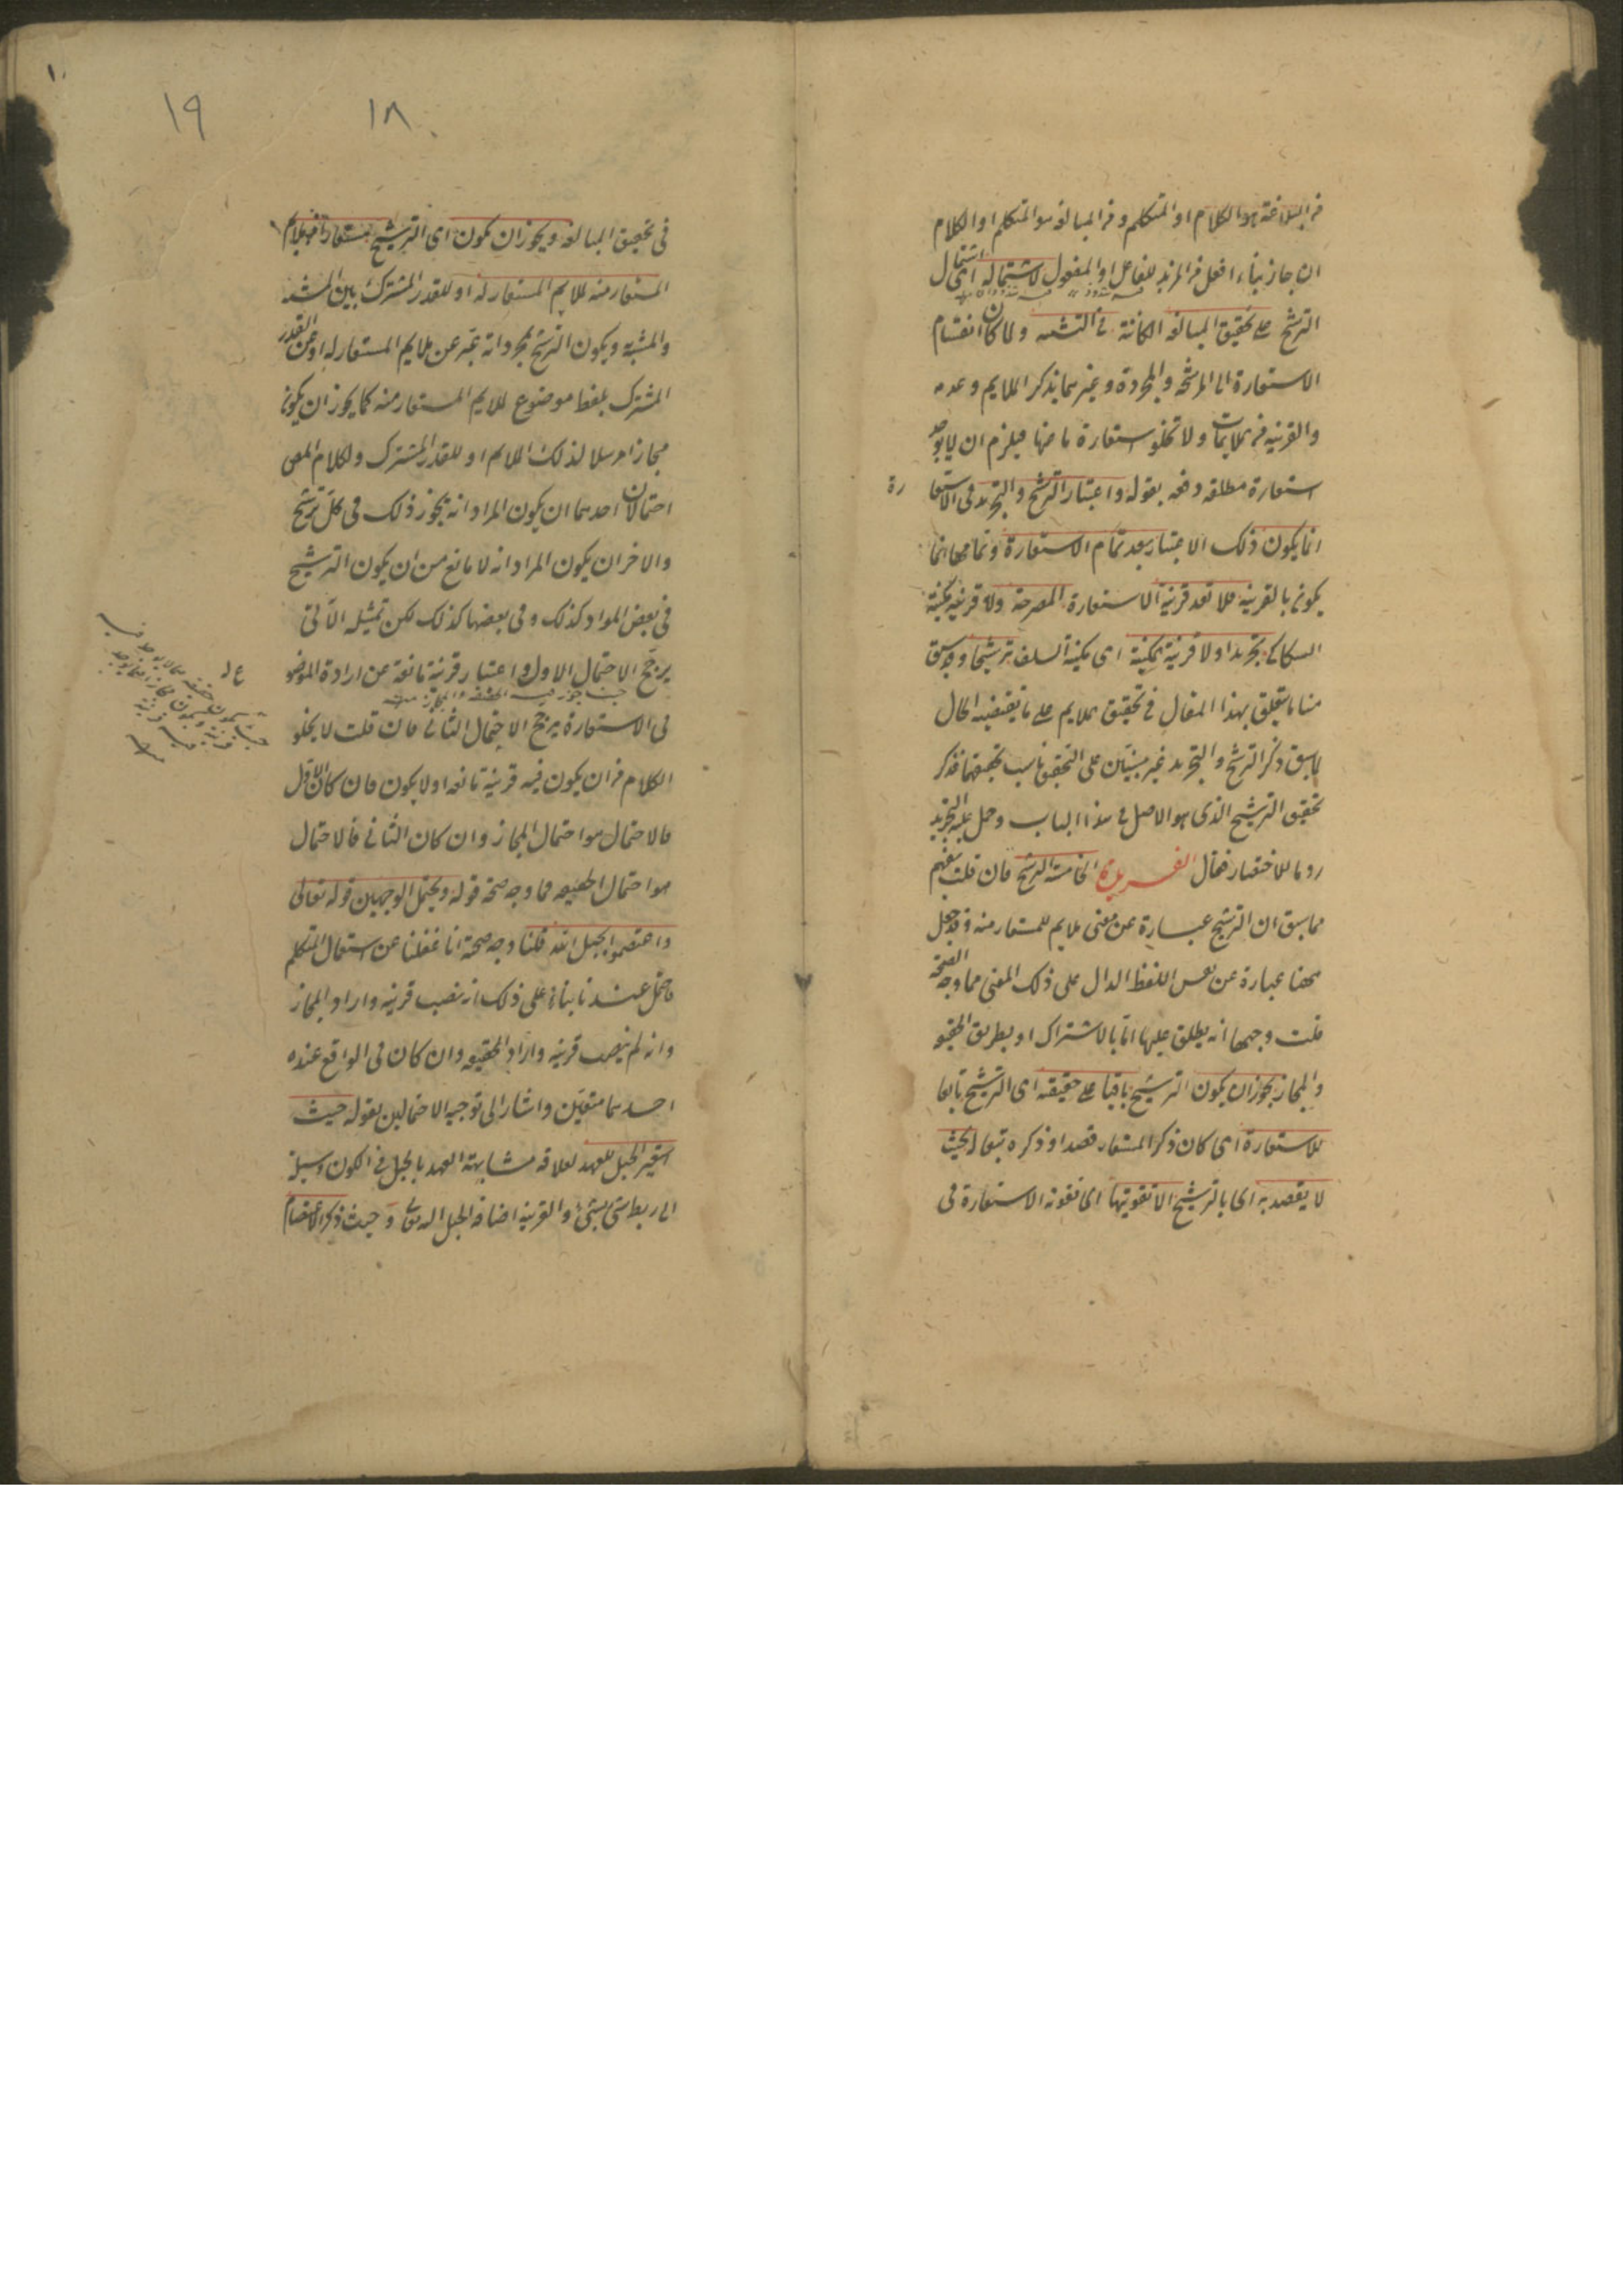 من البلاغة هو الكلام او المتكلم و من المبالغة هو المتكلم او الكلام
ان جاز بناء افعل من المزيد للفاعل او المفعول لاشتماله اى اشتمال
الترشيح على تحقيق المبالغة الكائنة فى التشبيه ولما كان انقسام
الاستعارة الى المرشحة والمجردة وغيرهما بذكر الملايم وعدمه
والقرينة من الملايمات ولا تخلو استعارة ما عنها فيلزم ان لا يوجد
استعارة مطلقة دفعه بقوله واعتبار الترشيح والتجريد فى الاستعارة
انما يكون ذلك الاعتبار بعد تمام الاستعارة وتمامها انما
يكون بالقرينة فلا تعد قرينة الاستعارة المصرحة ولا قرينة مكنية
السكاكى تجريدا ولا قرينة المكنية اى مكنية السلف ترشيحا وقد سبق
منا ما يتعلق بهذا المقال فى تحقيق الملايم على ما يقتضيه الحال
لما سبق ذكر الترشيح والتجريد غير مبنيين على التحقيق ناسب تحقيقهما فذكر
تحقيق الترشيح الذى هو الاصل فى هذا الباب وحمل عليه التجريد
روما للاختصار فقال الفريدة الخامسة الترشيح فان قلت يفهم
مما سبق ان الترشيح عبارة عن معنى ملايم للمستعار منه وقد جعل
ههنا عبارة عن نفس اللفظ الدال على ذلك المعنى فما وجه الصحة
قلت وجهها انه يطلق عليها اما بالاشتراك او بطريق الحقيقة
والمجاز يجوز ان يكون الترشيح باقيا على حقيقته اى الترشيح تابعا
للاستعارة اى كان ذكر المستعار قصدا وذكره تبعا له بحيث
لا يقصد به اى بالترشيح الا تقويتها اى تقوية الاستعارة فى
١٨
١٩
فى تحقيق المبالغة ويجوز ان يكون اى الترشيح مستعارا من ملايم
المستعار منه لملايم المستعار له او للقدر المشترك بين المشبه
والمشبه به ويكون الترشيح بمجرد انه عبر عن ملايم المستعار له او عن القدر
المشترك بلفظ موضوع لملايم المستعار منه كما يجوز ان يكون
مجازا مرسلا لذلك الملايم او للقدر المشترك ولكلام المص
احتمالان احدهما ان يكون المراد انه يجوز ذلك فى كل ترشيح
والاخر ان يكون المراد انه لا مانع من ان يكون الترشيح
فى بعض المواد كذلك وفى بعضها كذلك لكن تمثيله الآتى
يرجح الاحتمال الاول واعتبار قرينة مانعة عن ارادة الموضوع
فى الاستعارة يرجح الاحتمال الثانى فان قلت لا يخلو
الكلام من ان يكون فيه قرينة مانعة او لا يكون فان كان الاول
فالاحتمال هو احتمال المجاز وان كان الثانى فالاحتمال
هو احتمال الحقيقة فما وجه صحة قوله ويحتمل الوجهين قوله تعالى
واعتصموا بحبل الله قلنا وجه صحته انا غفلنا عن استعمال المتكلم
فاحتمل عندنا بناء على ذلك انه نصب قرينة واراد المجاز
وانه لم ينصب قرينة واراد الحقيقة وان كان فى الواقع عنده
احدهما متعين واشار الى توجيه الاحتمالين بقوله حيث
استعير الحبل للعهد لعلاقة مشابهة العهد بالحبل فى الكون وسيلة
الى ربط شئ بشئ والقرينة اضافة الحبل اليه تعالى وحيث ذكر الاعتصام